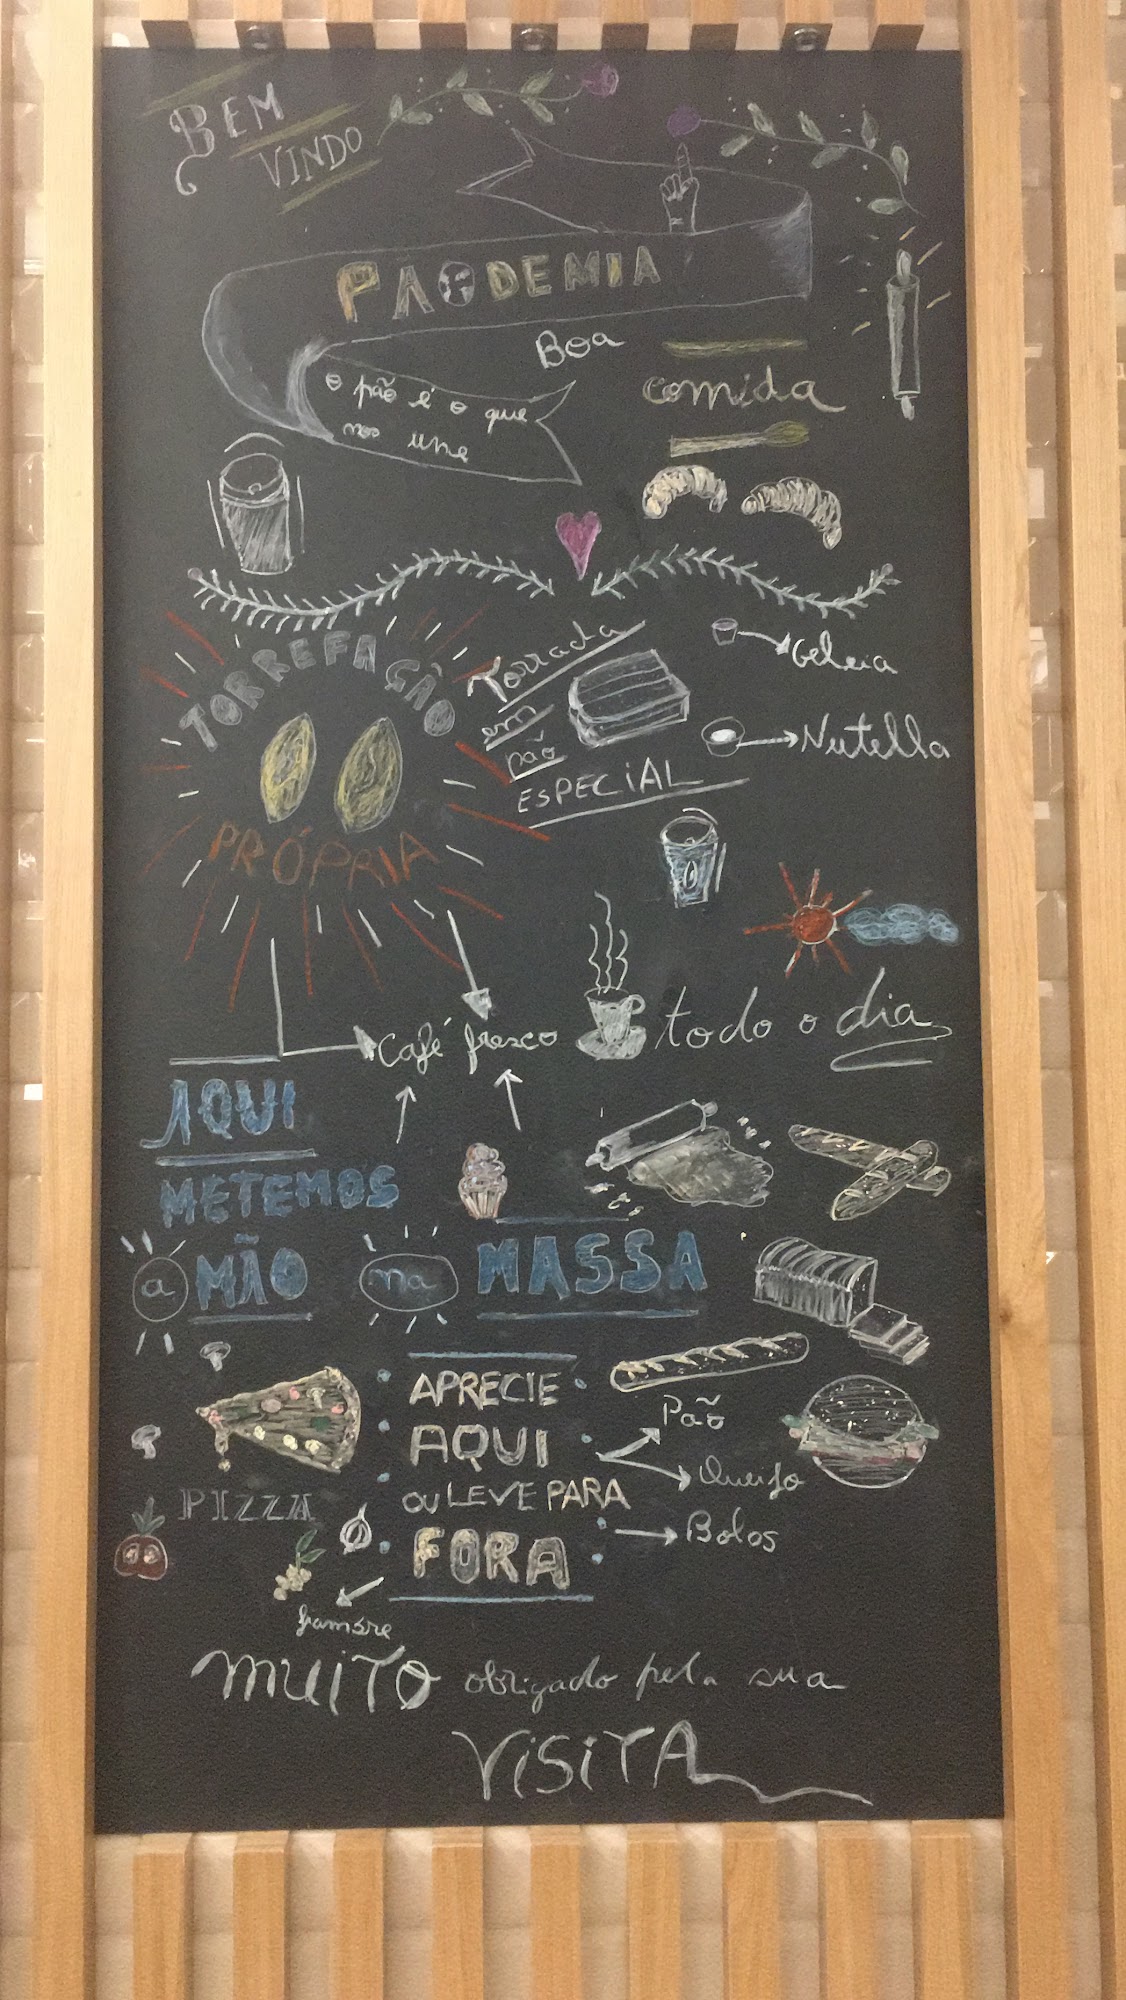 BEM
VINDO
PÃODEMIA
o pão é o que
nos une
Boa
comida
TORREFAÇÃO
PRÓPRIA
Torrada
em
pão
ESPECIAL
Geleia
Nutella
Café fresco
todo o dia
AQUI
METEMOS
a MÃO na MASSA
APRECIE
AQUI
OU LEVE PARA
FORA
Pão
Queijo
Bolos
PIZZA
fiambre
MUITO obrigado pela sua
VISITA